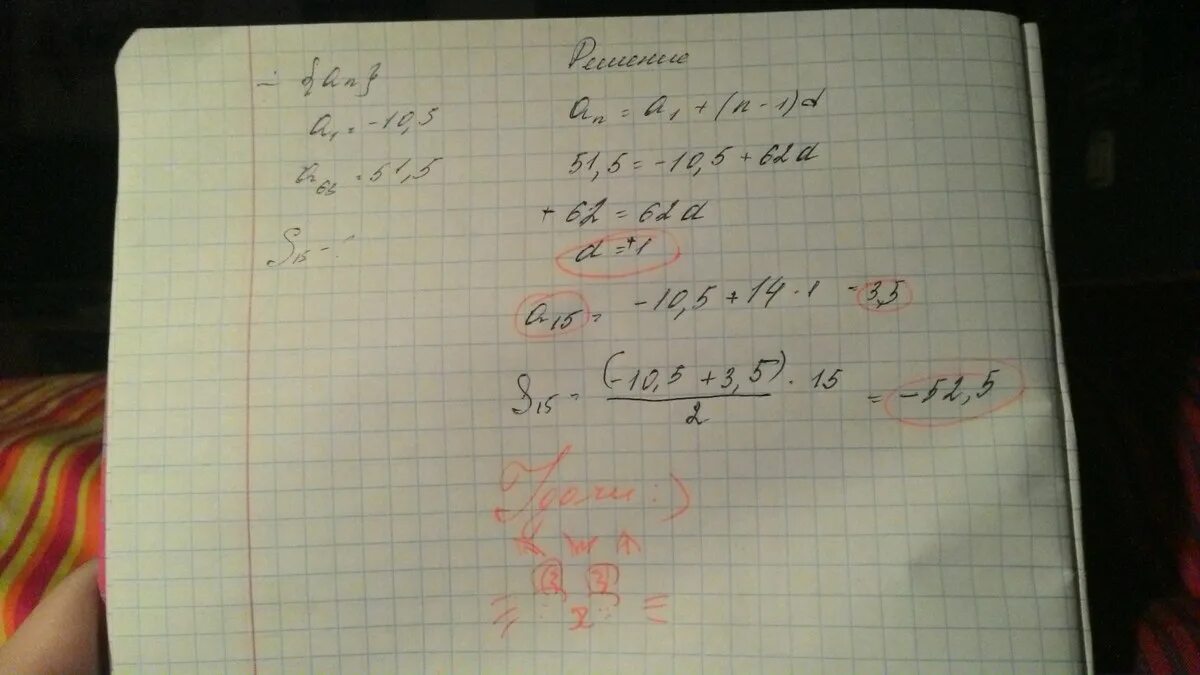 ÷ {aₙ}
a₁ = -10,5
a₆₃ = 51,5
S₁₅ - ?
Решение
aₙ = a₁ + (n - 1)d
51,5 = -10,5 + 62d
+ 62 = 62d
d = +1
a₁₅ = -10,5 + 14 · 1 = 3,5
S₁₅ = (-10,5 + 3,5)/2 · 15 = -52,5
Удачи :)